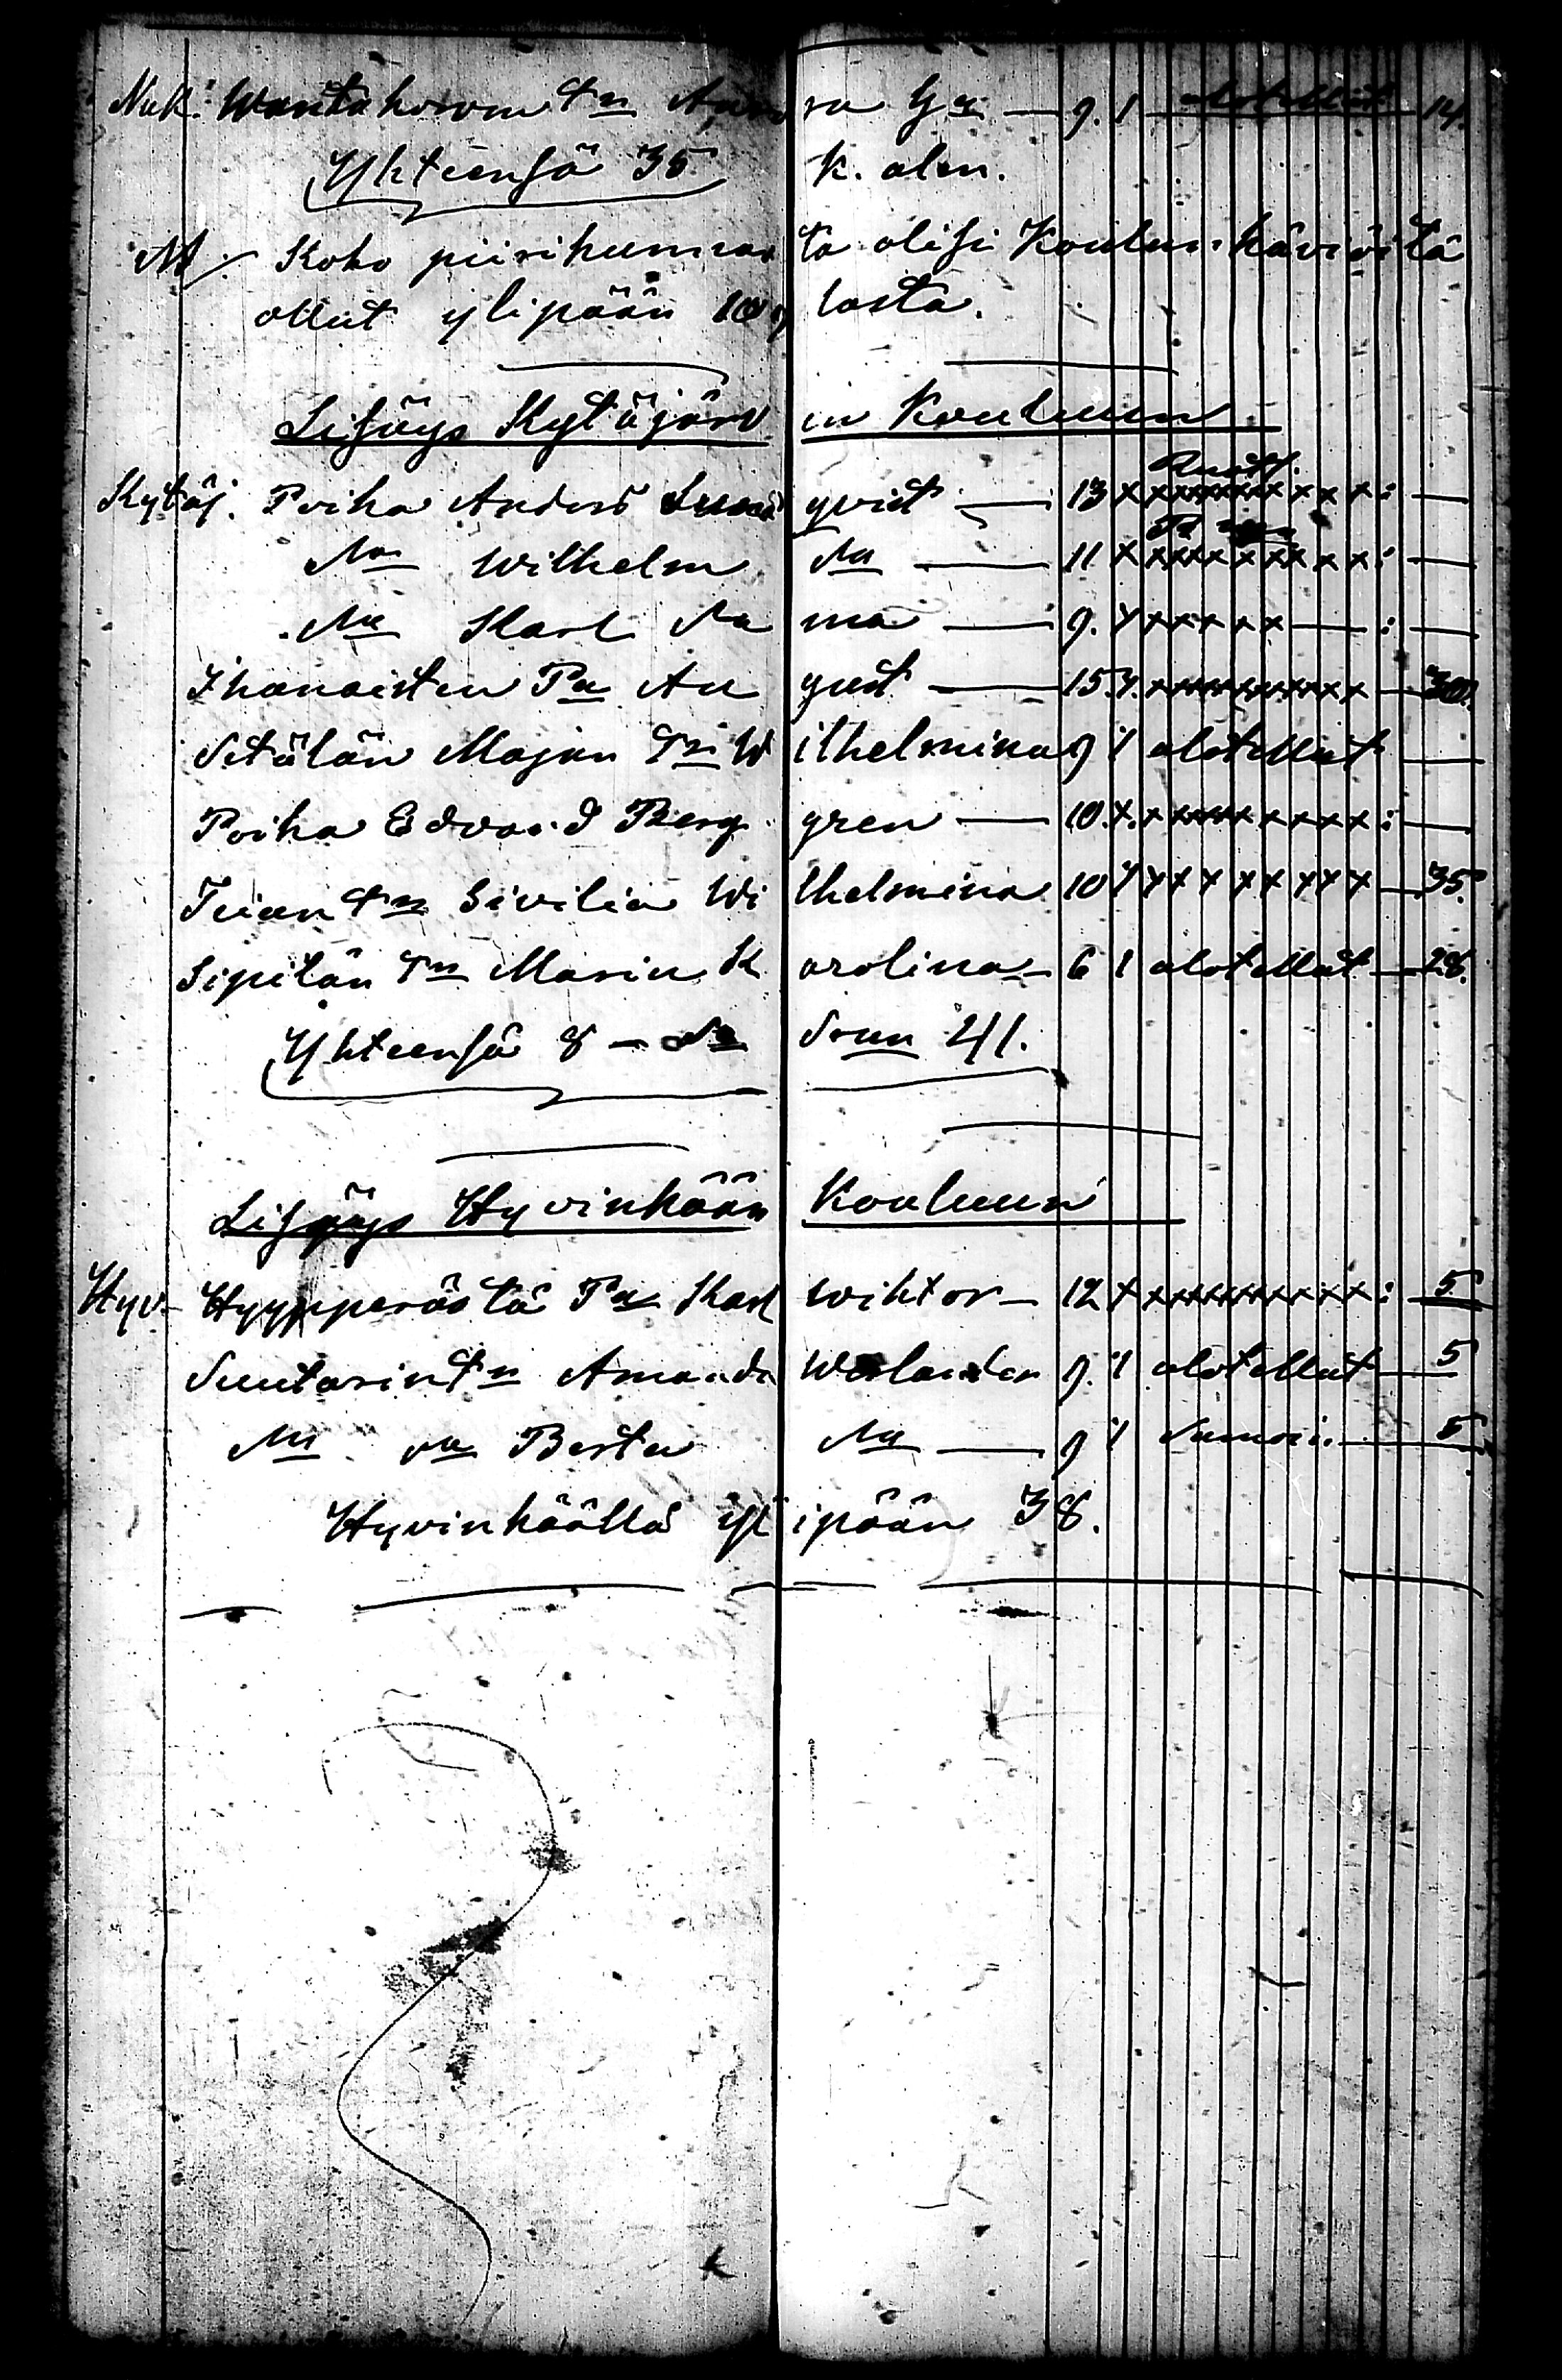 Nuk: Wantakorven Tr Aurora Ga — 9. 1 alotellut 14.
Yhteensä 35 k. olen.
M/. Koko piirikunnasta olisi Koulun kävijöitä
ollut ylipään 109 lasta.
Lisäys Kytäjärven Kouluun
Ruots.
Kytäj. Poika Anders qvist — 13 x x x x x x x x x x : —
Wilhelm — 11 x x x x x x x x x x : —
Karl Sama — 9. x x x x x x — : —
Ihanaisten Pa August — 15 x x x x x x x x x x — 30.
Setälän Majan Tr Wilhelmina 9 1 alotellut —
Poika Edvard Berggren — 10. x. x x x x x x x x x : —
Tr Sivilia Wilhelmina 10 x x x x x x x x x — 35.
Sipilän Tr Maria Karolina — 6 1 alotellut — 28.
Yhteensä 8 — Suun 41.
Lisäys Hyvinkään Kouluun
Hyv- Hyypperästä Pa Karl Wiktor — 12 x x x x x x x x x x : 5
Suutarin Tr Amanda Welander 9. 1 alotellut — 5
Berta — 9 1 Samoin. — 5
Hyvinkäällä ylipään 38.